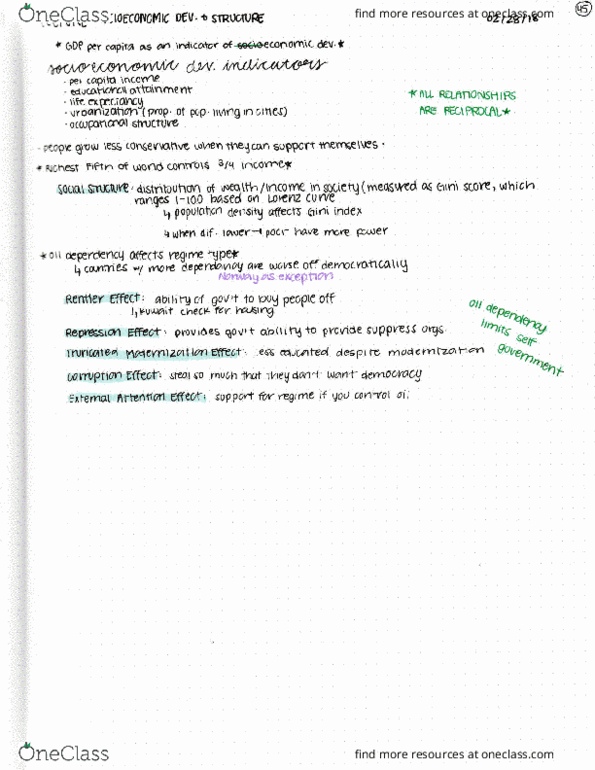 OneClass
find more resources at oneclass.com
45
CIOECONOMIC DEV. + STRUCTURE
02/28/18
* GDP per capita as an indicator of socioeconomic dev.*
socioeconomic dev. indicators
· per capita income
· educational attainment
· life expectancy
· urbanization (prop. of pop. living in cities)
· occupational structure
*ALL RELATIONSHIPS
ARE RECIPROCAL*
· people grow less conservative when they can support themselves ·
* Richest fifth of world controls 3/4 income*
SOCIAL STRUCTURE: distribution of wealth/income in society (measured as Gini score, which
ranges 1-100 based on Lorenz curve
↳ population density affects Gini index
↳ when dif. lower → poor have more power
* Oil dependency affects regime type*
↳ countries w/ more dependancy are worse off democratically
Norway as exception
Rentier Effect: ability of gov't to buy people off
↳ Kuwait check for housing
Repression Effect: provides gov't ability to provide suppress orgs.
Truncated Modernization Effect: less educated despite modernization
Corruption Effect: steal so much that they don't want democracy
External Attention Effect: support for regime if you control oil
oil dependency
limits self
government
OneClass
find more resources at oneclass.com